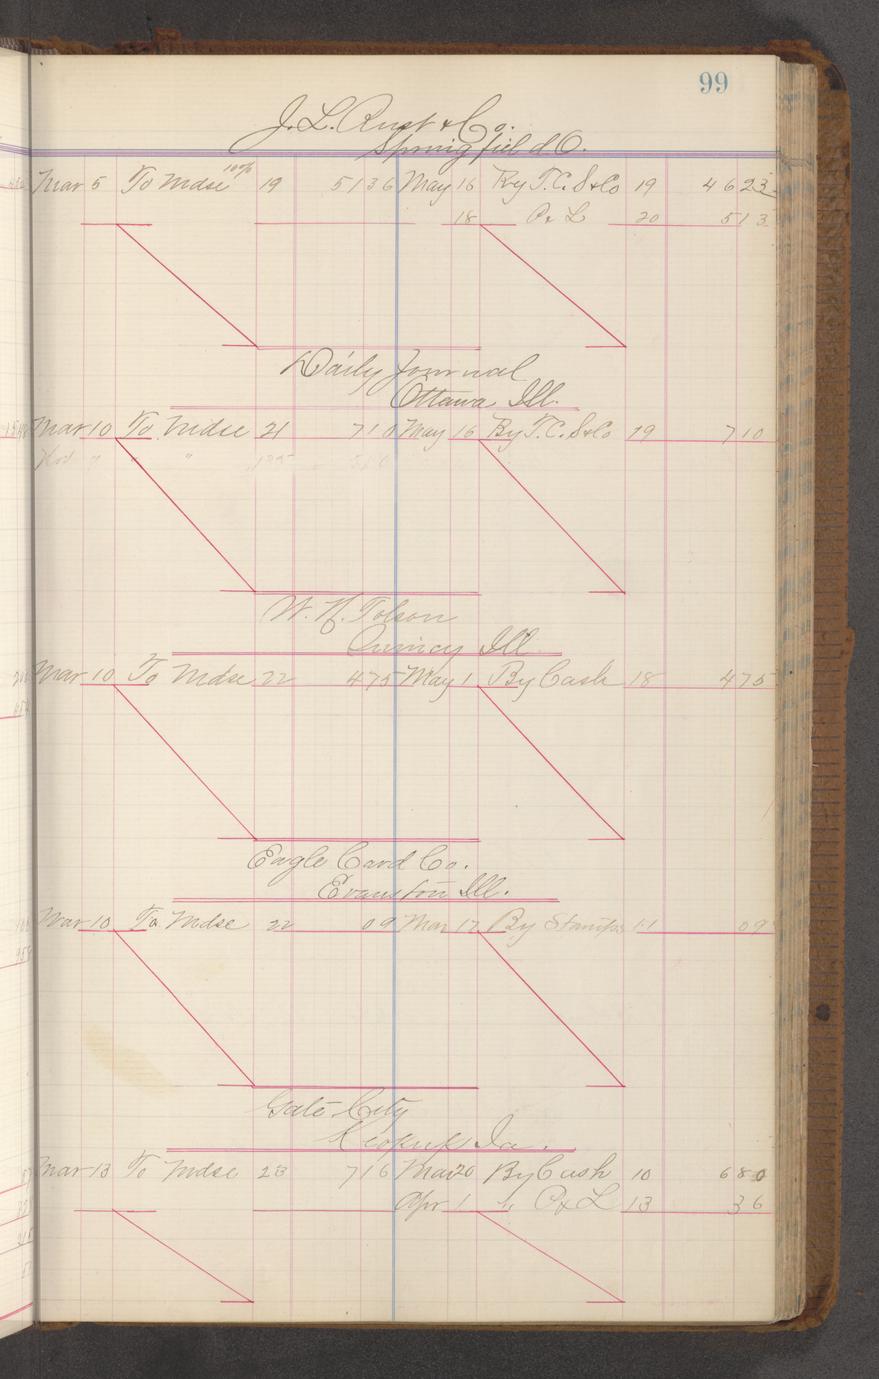 99
J. L. Rust & Co.
Springfield O.
Mar 5 To Mdse 10% 19 51 36 May 16 By T. C. S & Co 19 46 23
18 P & L 20 5 13
Daily Journal
Ottawa Ill.
Mar 10 To Mdse 21 7 10 May 16 By T. C. S & Co 19 7 10
Nov 7 " " 135
W. H. Tolson
Quincy Ill
Mar 10 To Mdse 22 4 75 May 1 By Cash 18 4 75
Eagle Card Co.
Evanston Ill.
Mar 10 To Mdse 22 09 Mar 17 By Stamps 11 09
Gate City
Keokuk Ia.
Mar 13 To Mdse 23 7 16 Mar 20 By Cash 10 6 80
Apr 1 " P & L 13 36